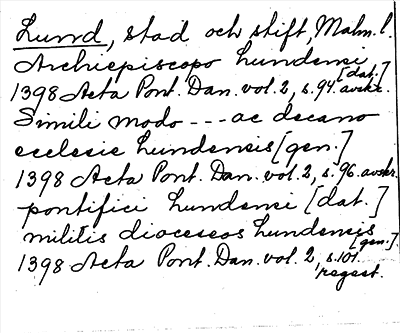 Lund, stad och stift, Malm. l.
Archiepiscopo lundensi [dat.]
1398 Acta Pont. Dan. vol. 2, s. 94. avskr.
Simili modo --- ac decano
ecclesie lundensis [gen.]
1398 Acta Pont. Dan. vol. 2, s. 96. avskr.
pontifici lundensi [dat.]
militis dioceseos lundensis [gen.]
1398 Acta Pont. Dan. vol. 2, s. 101.
regest.